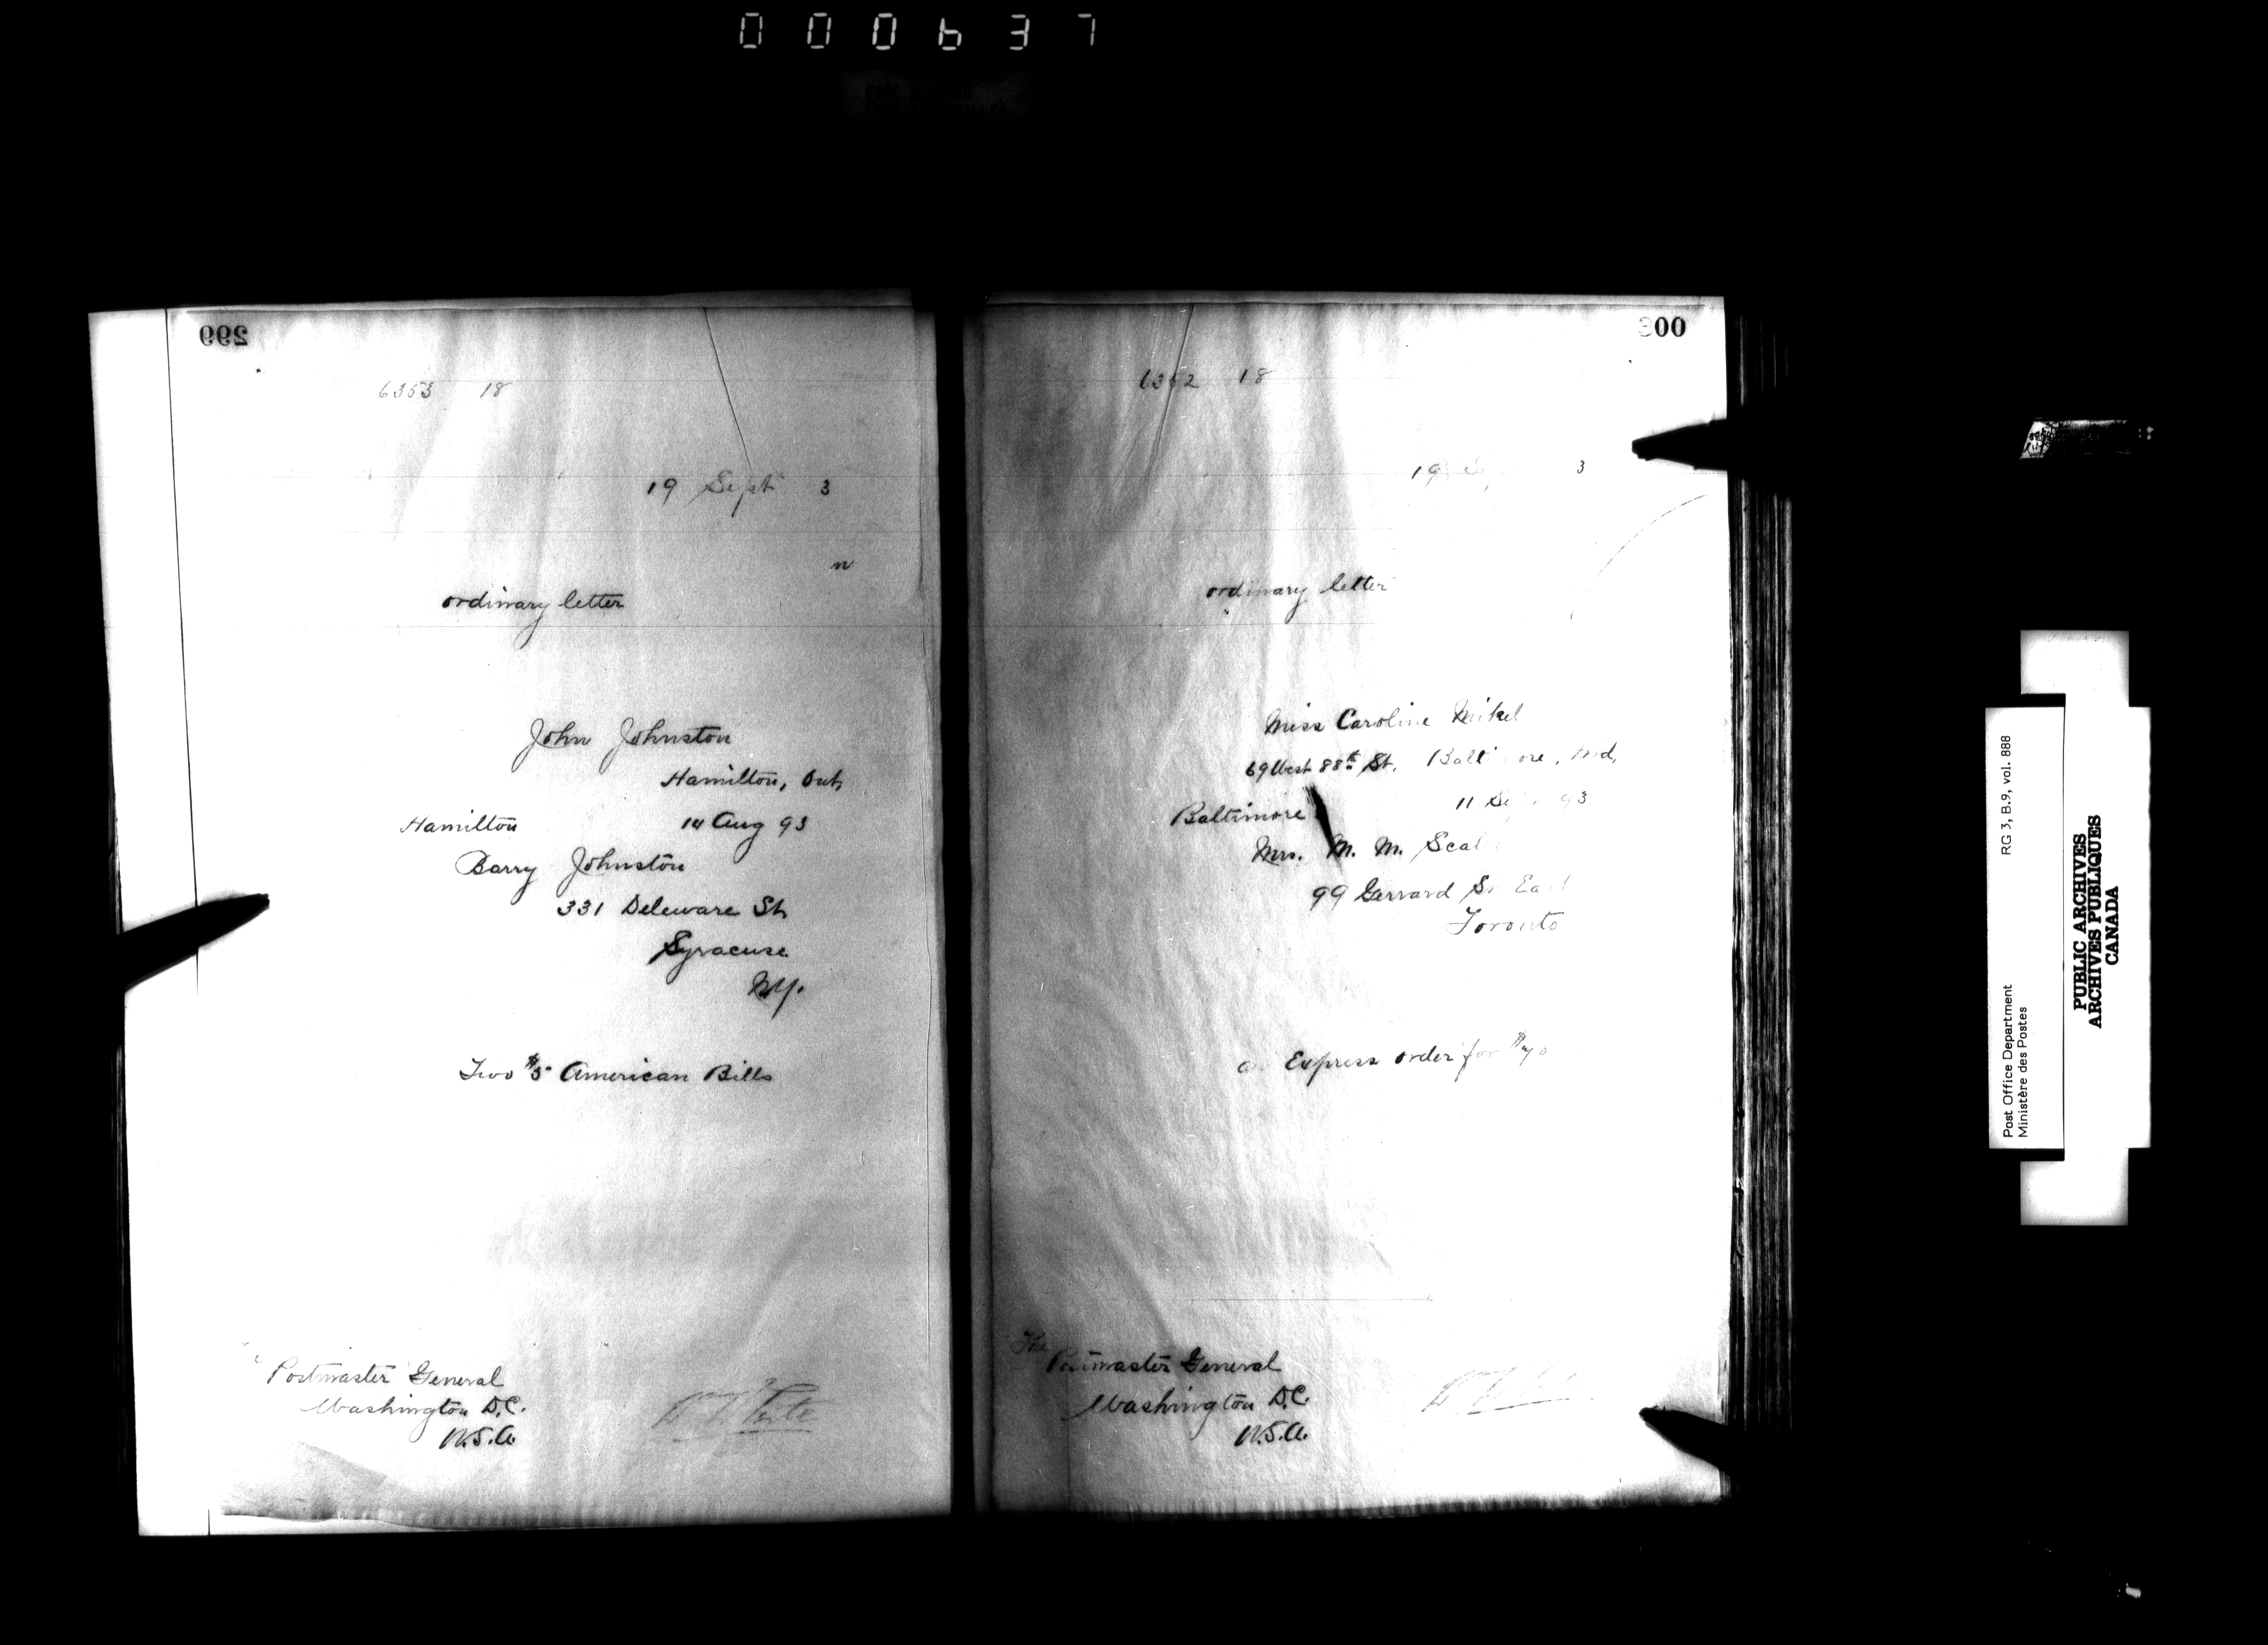 000637
299
6353 18
19 Sept 3
n
ordinary letter
John Johnston
Hamilton, Ont,
Hamilton 14 Aug 93
Barry Johnston
331 Deleware St,
Syracuse
N.Y.
Two $5 American Bills
Postmaster General
Washington D.C.
U.S.A.
300
6352 18
19 3
ordinary letter
Miss Caroline Mikel
69 West 88th St. Baltimore, Md,
Baltimore 11 93
Mrs. M. M.
99 Gerrard St East
Toronto
Express order for
The Postmaster General
Washington D.C.
U.S.A.
Post Office Department RG 3, B.9, vol. 888
Ministère des Postes
PUBLIC ARCHIVES
ARCHIVES PUBLIQUES
CANADA